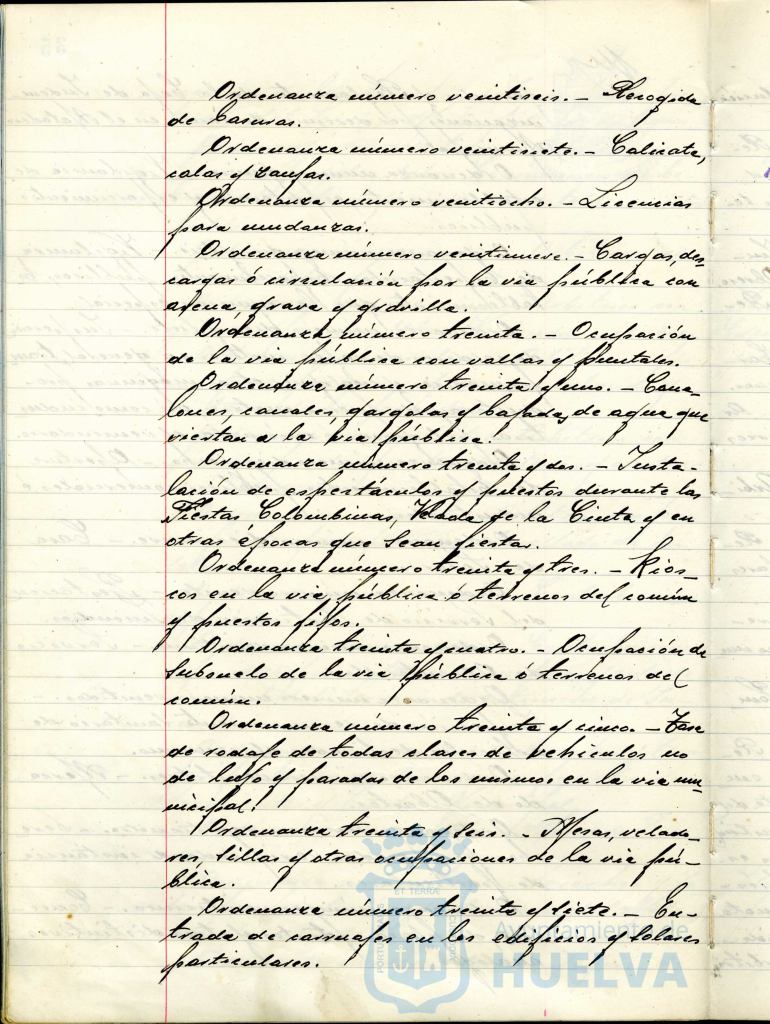 Ordenanza número veintiseis. - Recogida
de basuras.
Ordenanza número veintisiete. - Calicata,
calas y zanjas.
Ordenanza número veintiocho. - Licencias
para mudanzas.
Ordenanza número veintinueve. - Cargas, des-
cargas ó circulación por la via pública con
arena, grava y gravilla.
Ordenanza número treinta. - Ocupación
de la via pública con vallas y puntales.
Ordenanza número treinta y uno. - Cana-
lones, canales, gargolas y bajadas de agua que
viertan a la via pública.
Ordenanza número treinta y dos. - Insta-
lación de espectáculos y puestos durante las
Fiestas Colombinas, Velada de la Cinta y en
otras épocas que sean fiestas.
Ordenanza número treinta y tres. - Kios-
cos en la via pública o terrenos del común
y puestos fijos.
Ordenanza treinta y cuatro. - Ocupación de
subsuelo de la via pública ó terrenos del
común.
Ordenanza número treinta y cinco. - Tasa
de rodaje de todas clases de vehiculos no
de lujo y paradas de los mismos en la via mu-
nicipal.
Ordenanza treinta y seis. - Mesas, velado-
res, sillas y otras ocupaciones de la via pú-
blica.
Ordenanza número treinta y siete. - En-
trada de carruajes en los edificios y solares
particulares.
Ayuntamiento de
HUELVA